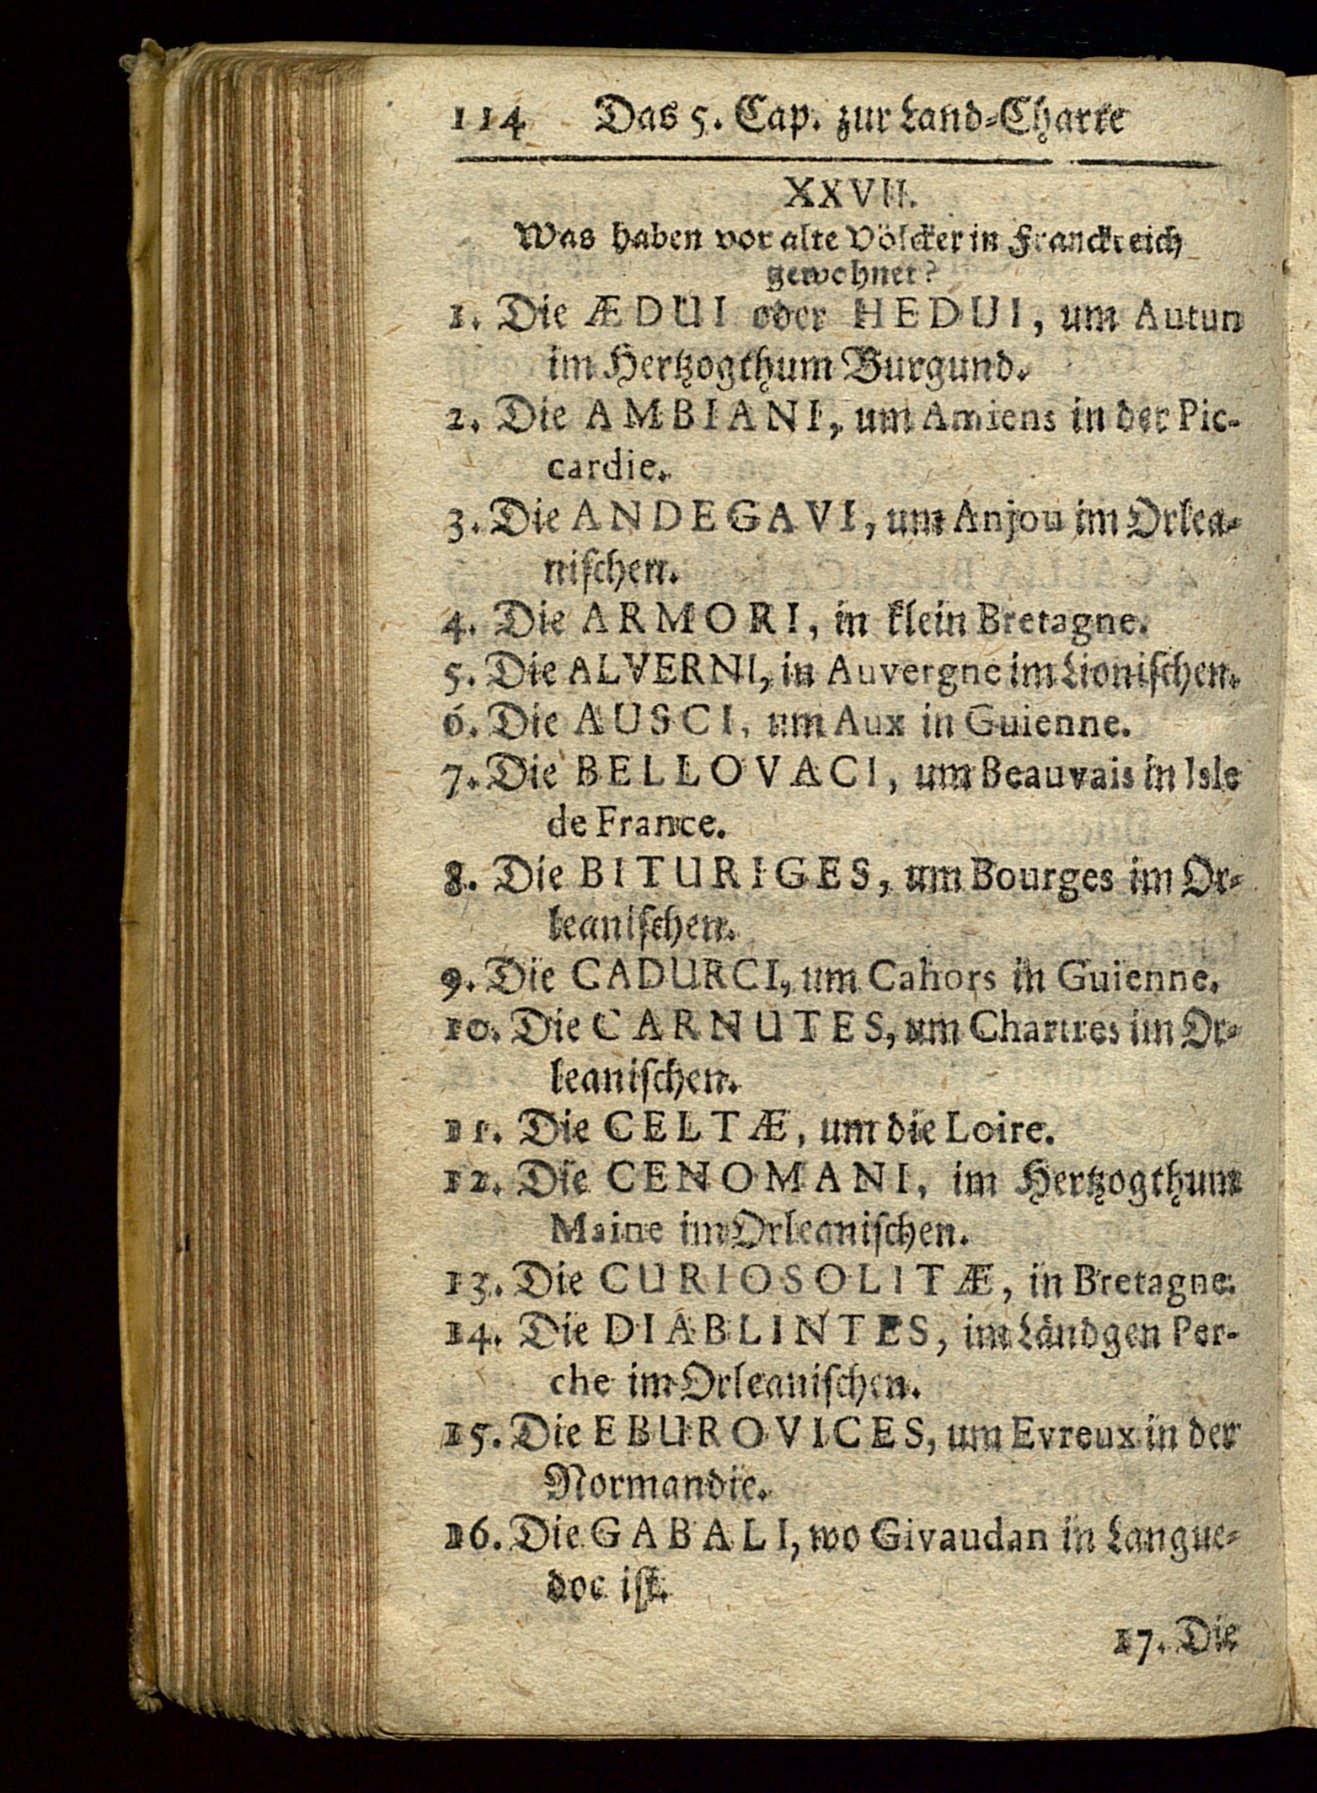 114 Das 5. Cap. zur Land-Charte
XXVII.
Was haben vor alte Völcker in Franckreich
gewohnet?
1. Die ÆDUI oder HEDUI, um Autun
im Hertzogthum Burgund.
2. Die AMBIANI, um Amiens in der Pic-
cardie.
3. Die ANDEGAVI, um Anjou im Orlea-
nischen.
4. Die ARMORI, in klein Bretagne.
5. Die ALVERNI, in Auvergne im Lionischen.
6. Die AUSCI, um Aux in Guienne.
7. Die BELLOVACI, um Beauvais in Isle
de France.
8. Die BITURIGES, um Bourges im Or-
leanischen.
9. Die CADURCI, um Cahors in Guienne.
10. Die CARNUTES, um Chartres im Or-
leanischen.
11. Die CELTÆ, um die Loire.
12. Die CENOMANI, im Hertzogthum
Maine im Orleanischen.
13. Die CURIOSOLITÆ, in Bretagne.
14. Die DIABLINTES, im Ländgen Per-
che im Orleanischen.
15. Die EBUROVICES, um Evreux in der
Normandie.
16. Die GABALI, wo Givaudan in Langue-
doc ist.
17. Die